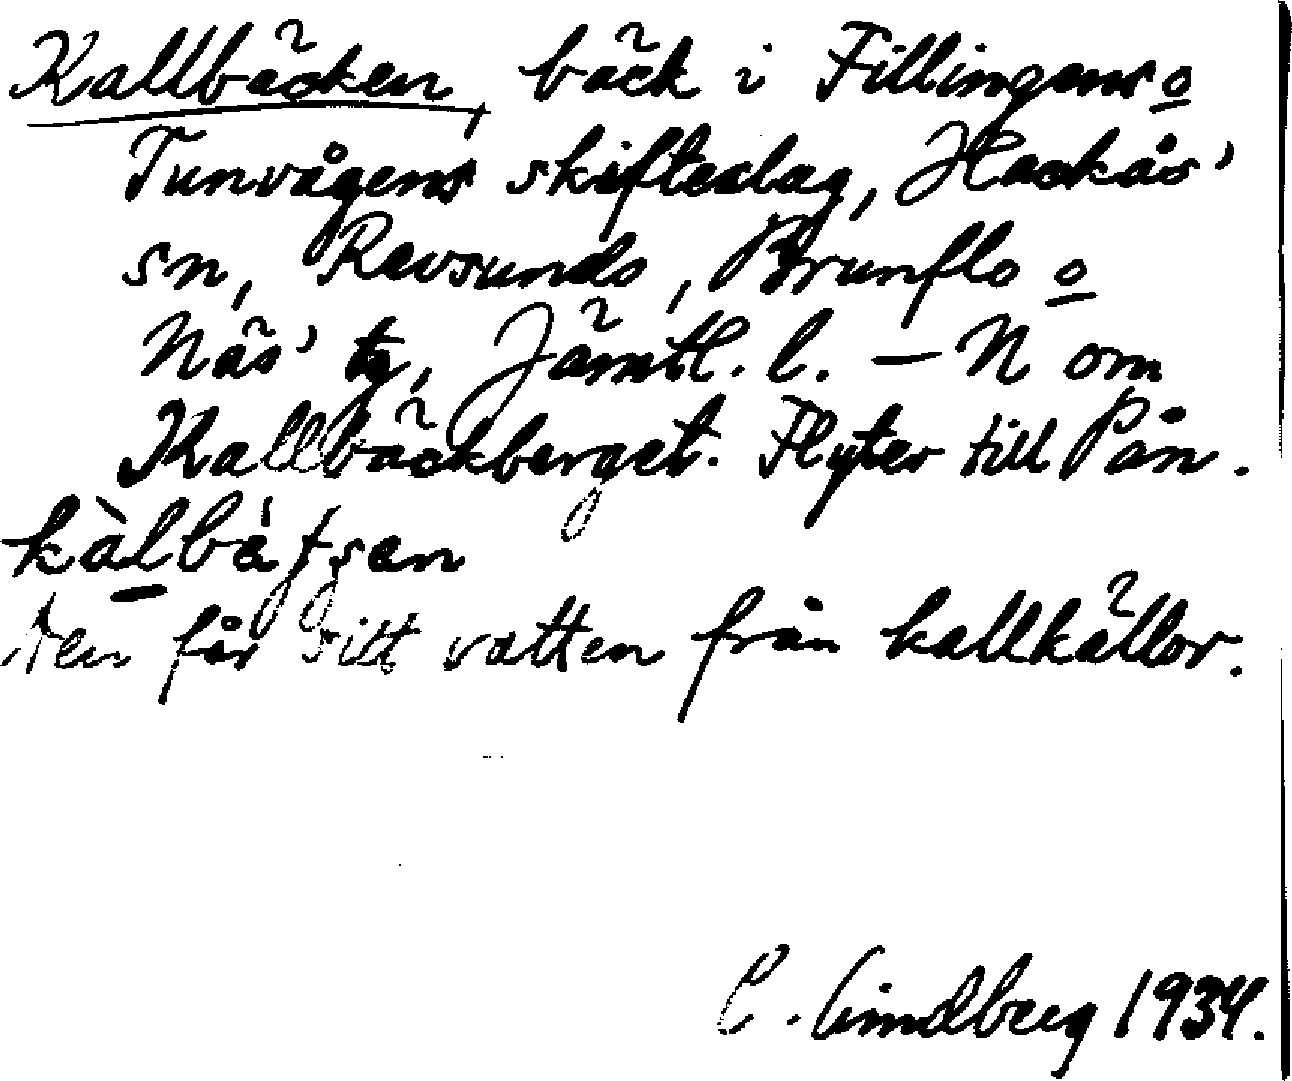 Kallbäcken, bäck i Fillingens o
Tunvågens skifteslag, Hackås'
sn, Revsunds, Brunflo o
Näs' tg, Jämtl. l. – N om
Kallbäckberget. Flyter till Pån.
kàlbátsen
Den får sitt vatten från kallkällor.
C. Lindberg 1934.